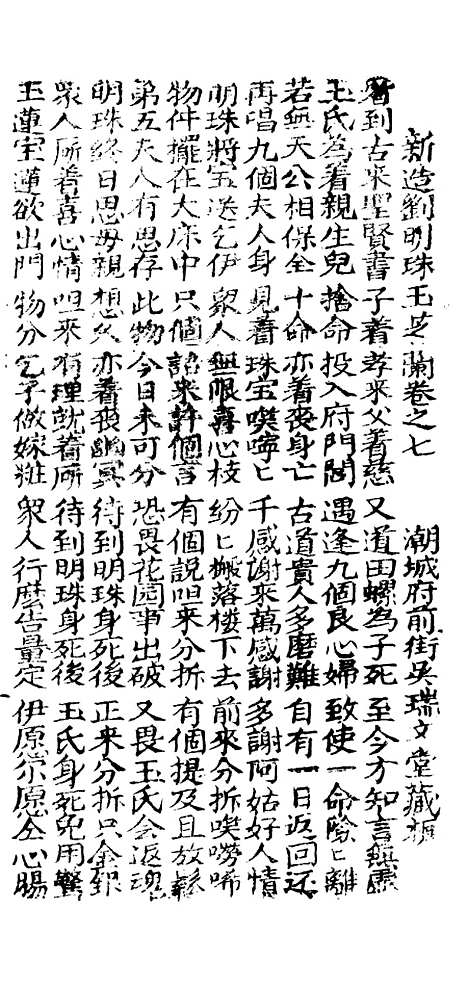 新造劉明珠玉芝蘭卷之七 潮城府前街吳瑞文堂藏板
看到古來聖賢書 子着孝來父着慈 又道田螺為子死 至今方知言無虛
王氏為着親生兒 捨命投入府門閭 遇逢九個良心婦 致使一命陰匕離
若無天公相保全 十命亦着喪身亡 古道貴人多磨難 自有一日返回还
再唱九個夫人身 見着珠宝喫嚀匕 千感謝來萬感謝 多謝阿姑好人情
明珠將宝送乞伊 衆人無限喜心枝 纷匕搬落楼下去 前來分拆喫嘮唏
物件擺在大床中 只個詔來許個言 有個説呾來分拆 有個提及且放鬆
第五夫人有思存 此物今日未可分 恐畏花园事出破 又畏玉氏会返魂
明珠終日思母親 想久亦着喪幽冥 待到明珠身死後 正来分拆只金銀
衆人所着喜心情 呾来有理就着所 待到明珠身死後 玉氏身死免用驚
玉蓮宝蓮欲出門 物分乞子做嫁粧 衆人行庅告量定 伊原崇愿仝心腸